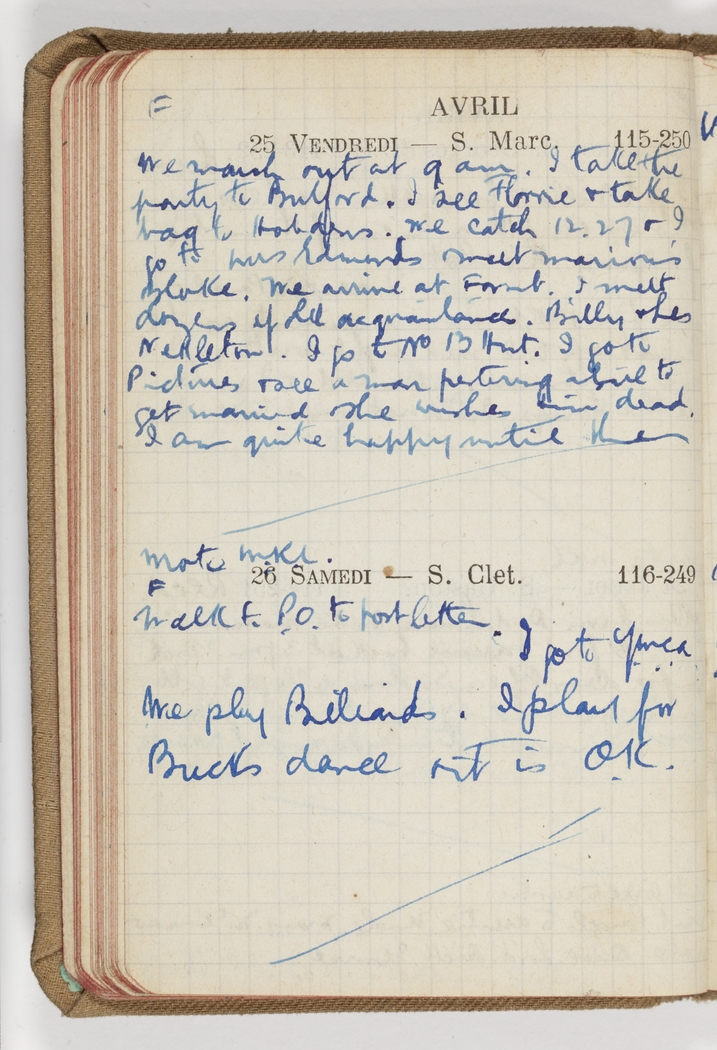 F
AVRIL
25 VENDREDI — S. Marc. 115-250
We march out at 9 am. I take the
party to Bulford. I see Florrie & take
bag to Hobdens. We catch 12.27 & I
go to Mrs Edmunds meet Marion's
bloke. We arrive at Fovnt. I meet
dozens of old acquaintances. Billy & Les
Nettleton. I go to No 13 Hut. I go to
Pictures & see a man pestering a girl to
get married & she wishes him dead.
I am quite happy until then
Mate
26 SAMEDI — S. Clet. 116-249
F
Walk to P.O. to post letter. I go to Ymca
We play Billiards. I play for
Bucks dance & it is O.K.